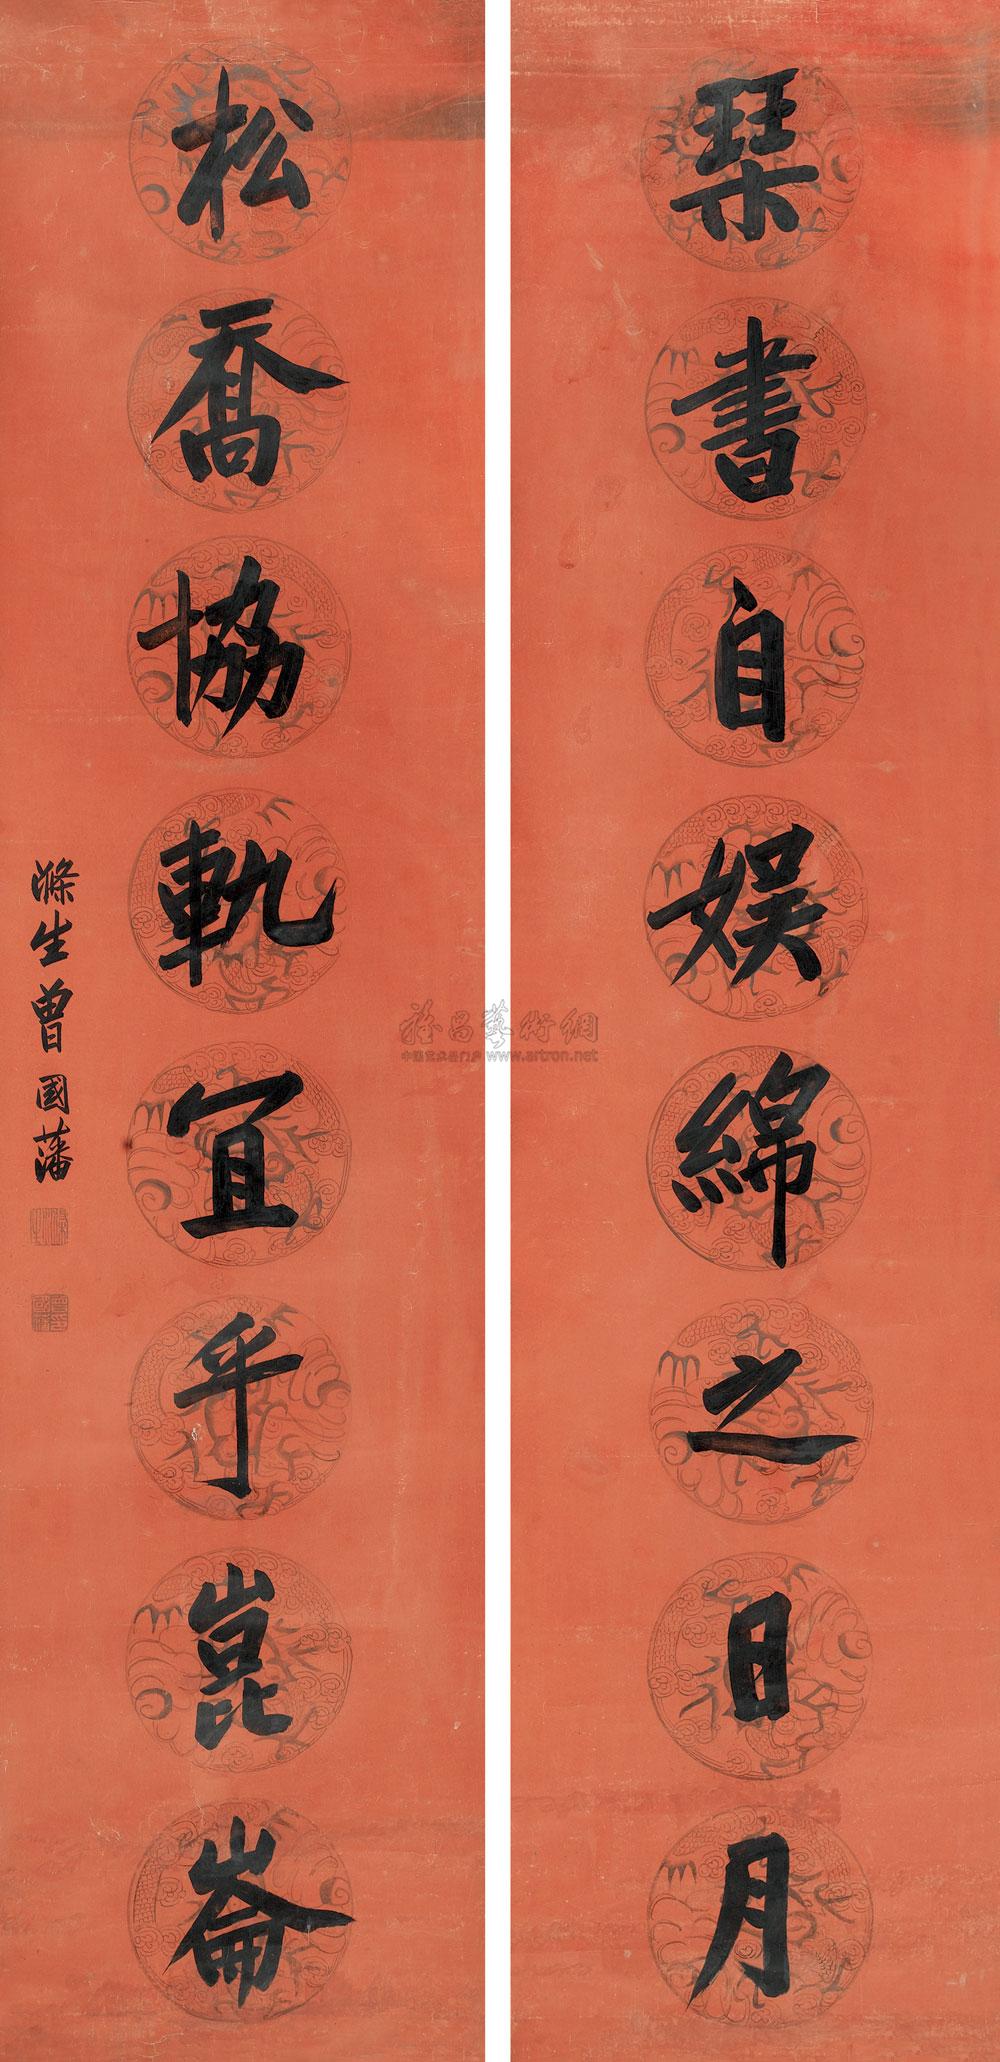 琹書自娱綿之日月
松喬協軌宜乎崑崙
滌生曾國藩
雅昌藝術網
中国艺术品门户 www.artron.net